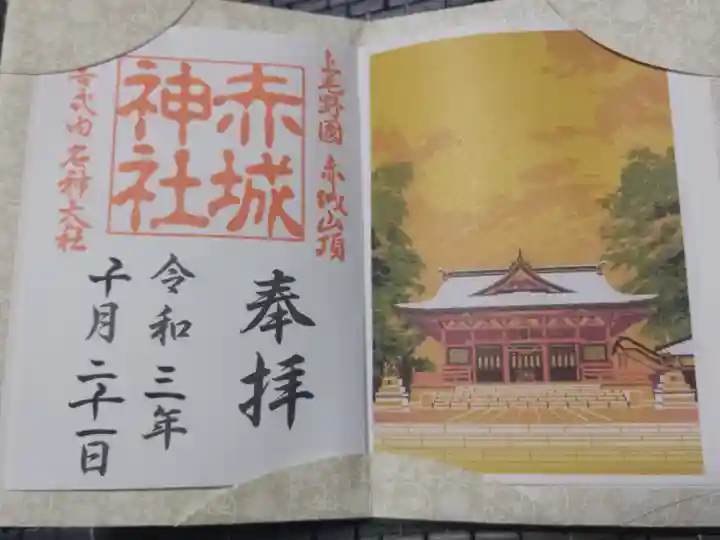 上毛野國 赤城山頂
赤城
神社
式内 名神大社
奉拝
令和三年
十月二十一日